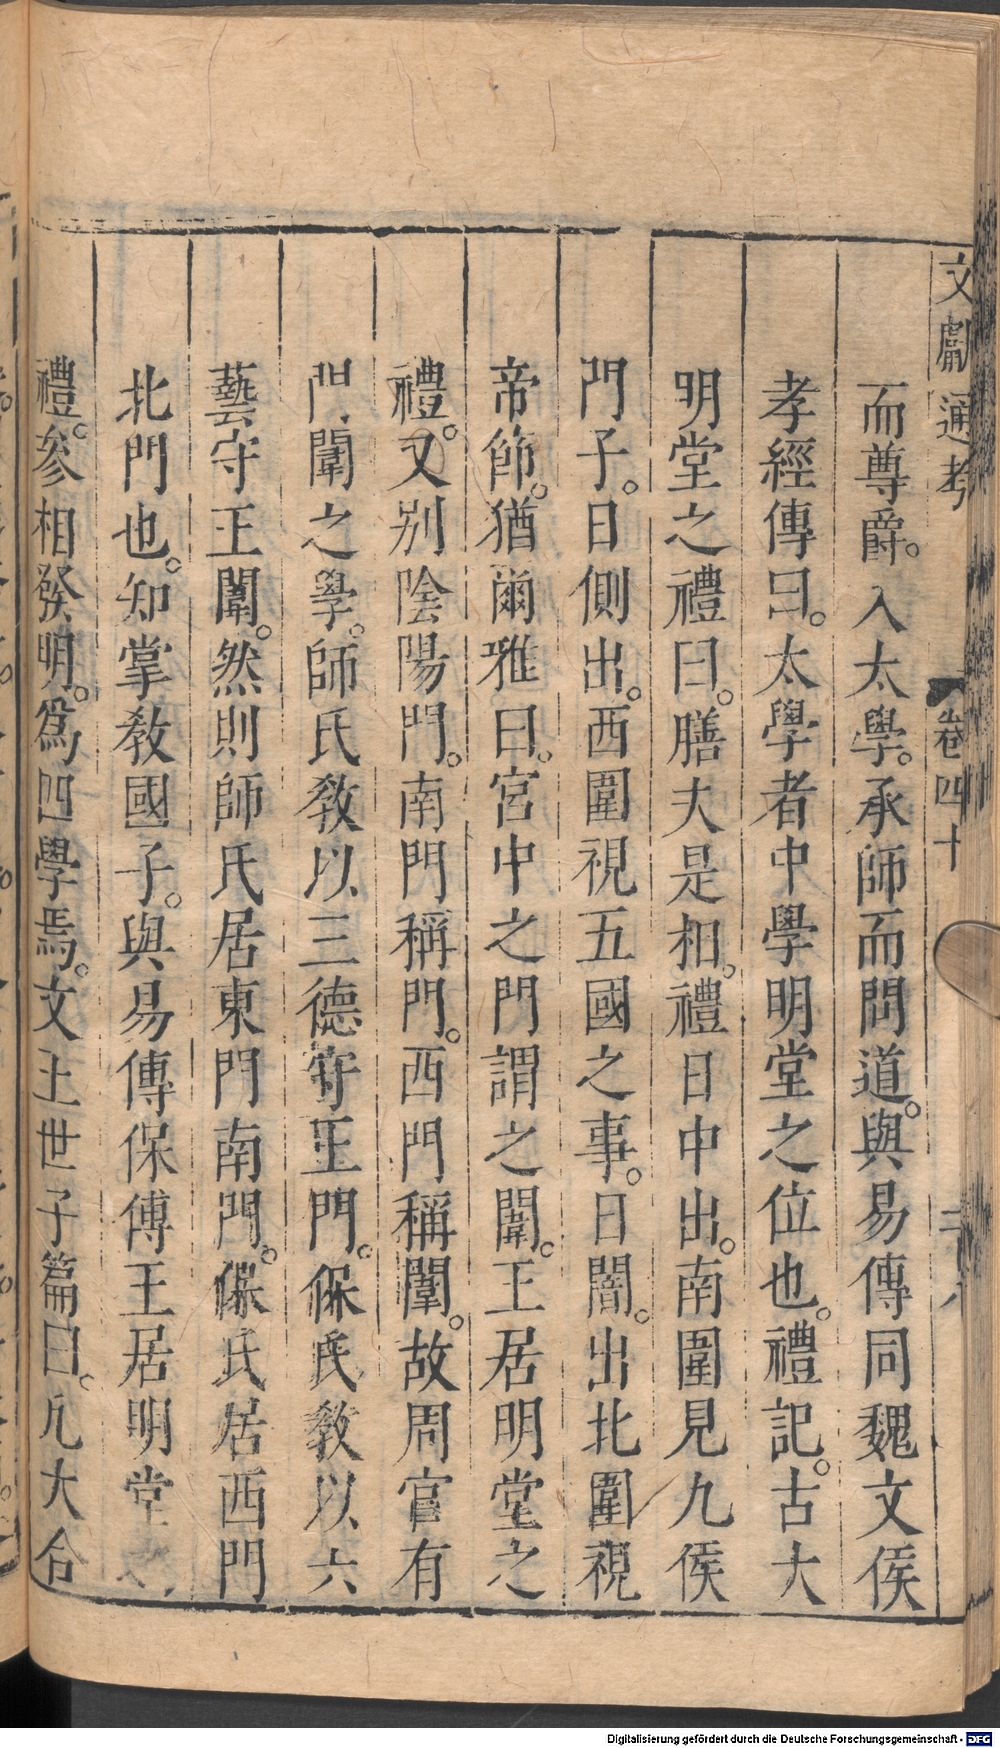 文獻通考 卷四十
而尊爵。入太學。承師而問道。與易傳同魏文侯
孝經傳曰。太學者中學明堂之位也。禮記。古大
明堂之禮曰。膳夫是相。禮日中出。南闈見九侯
門子。日側出。西闈視五國之事。日闇。出北闈視
帝節。猶爾雅曰。宮中之門謂之闈。王居明堂之
禮。又别陰陽門。南門稱門。西門稱闈。故周官有
門闈之學。師氏敎以三德守王門。保氏敎以六
藝守王闈。然則師氏居東門南門。保氏居西門
北門也。知掌敎國子。與易傳保傅王居明堂之
禮。參相發明。爲四學焉。文王世子篇曰。凡大合
Digitalisierung gefördert durch die Deutsche Forschungsgemeinschaft - DFG